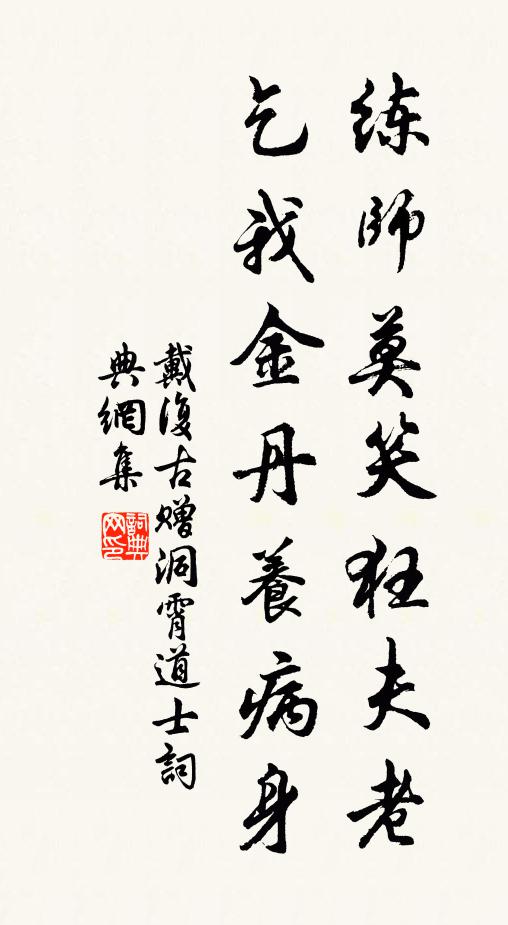 练師莫笑狂夫老
乞我金丹養病身
戴復古赠洞霄道士詞
典網集
詞典
网印